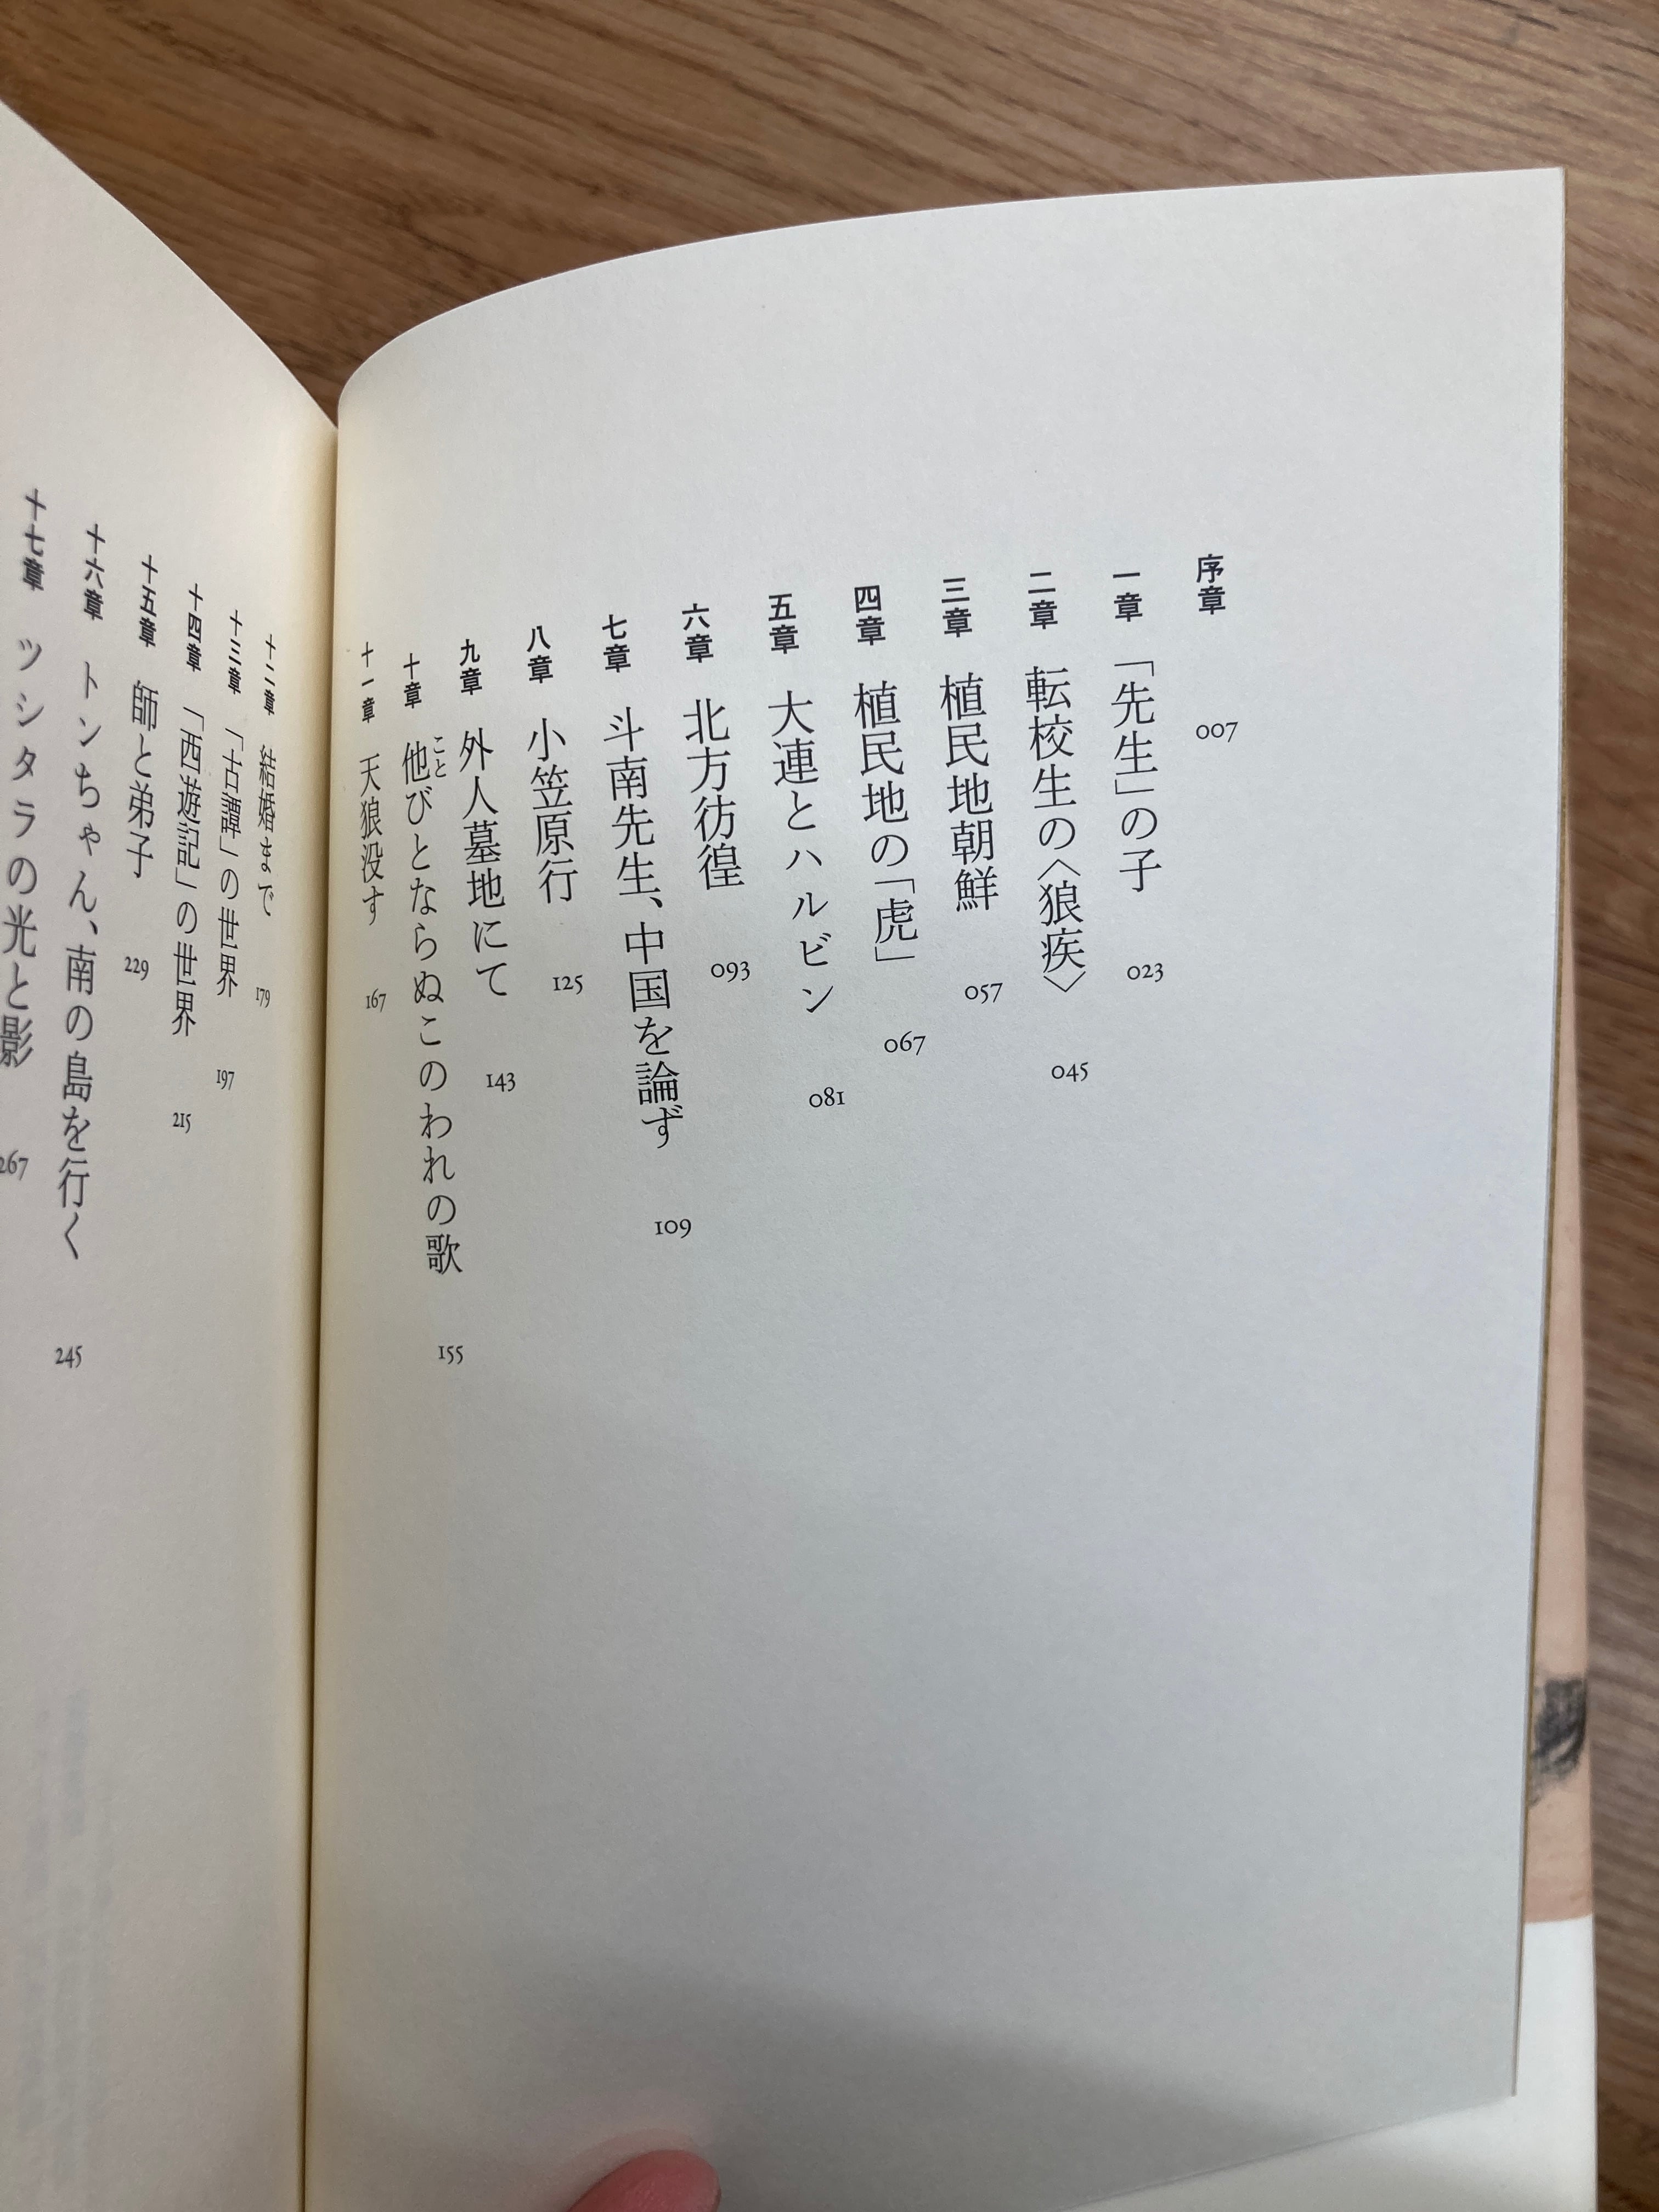 序章 007
一章 「先生」の子 023
二章 転校生の〈狼疾〉 045
三章 植民地朝鮮 057
四章 植民地の「虎」 067
五章 大連とハルビン 081
六章 北方彷徨 093
七章 斗南先生、中国を論ず 109
八章 小笠原行 125
九章 外人墓地にて 143
十章 他びとならぬこのわれの歌 155
こと
十一章 天狼没す 167
十二章 結婚まで 179
十三章 「古譚」の世界 197
十四章 「西遊記」の世界 215
十五章 師と弟子 229
十六章 トンちゃん、南の島を行く 245
十七章 ツシタラの光と影 267